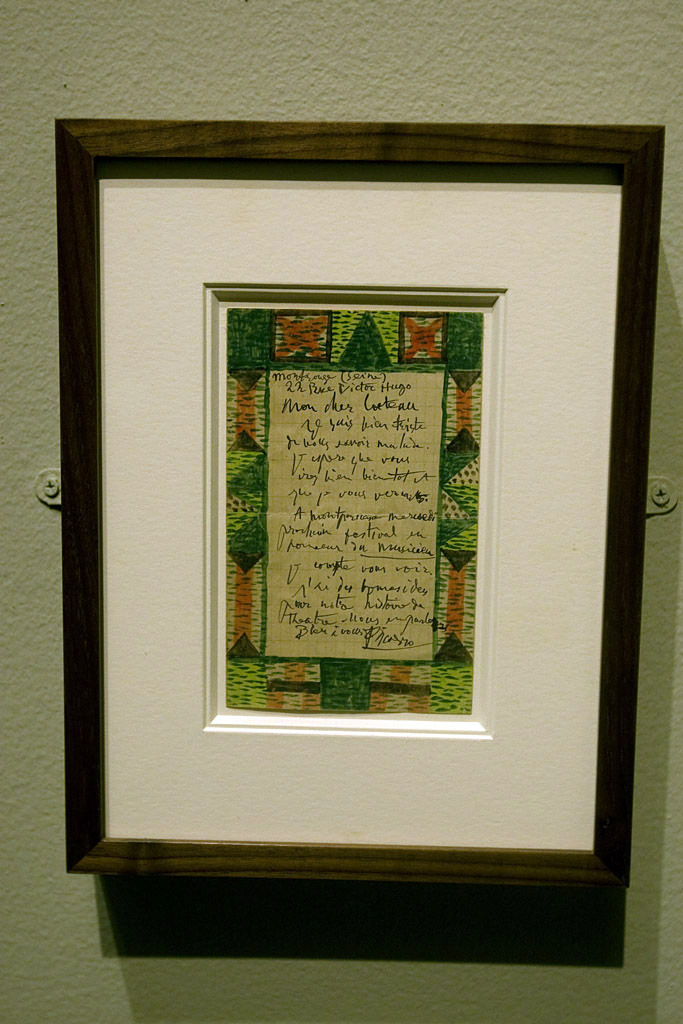 Montrouge (Seine)
22 Rue Victor Hugo
Mon cher Cocteau
Je suis bien triste
de vous savoir malade.
J espere que vous
irez bien bientot et
que je vous verrai.
A Montparnasse mercredi
prochain festival en
honneur du musicien
je compte vous voir
j'ai des bonnes idees
pour notre histoire de
theatre. Nous en parlerons
Bien a vous Picasso